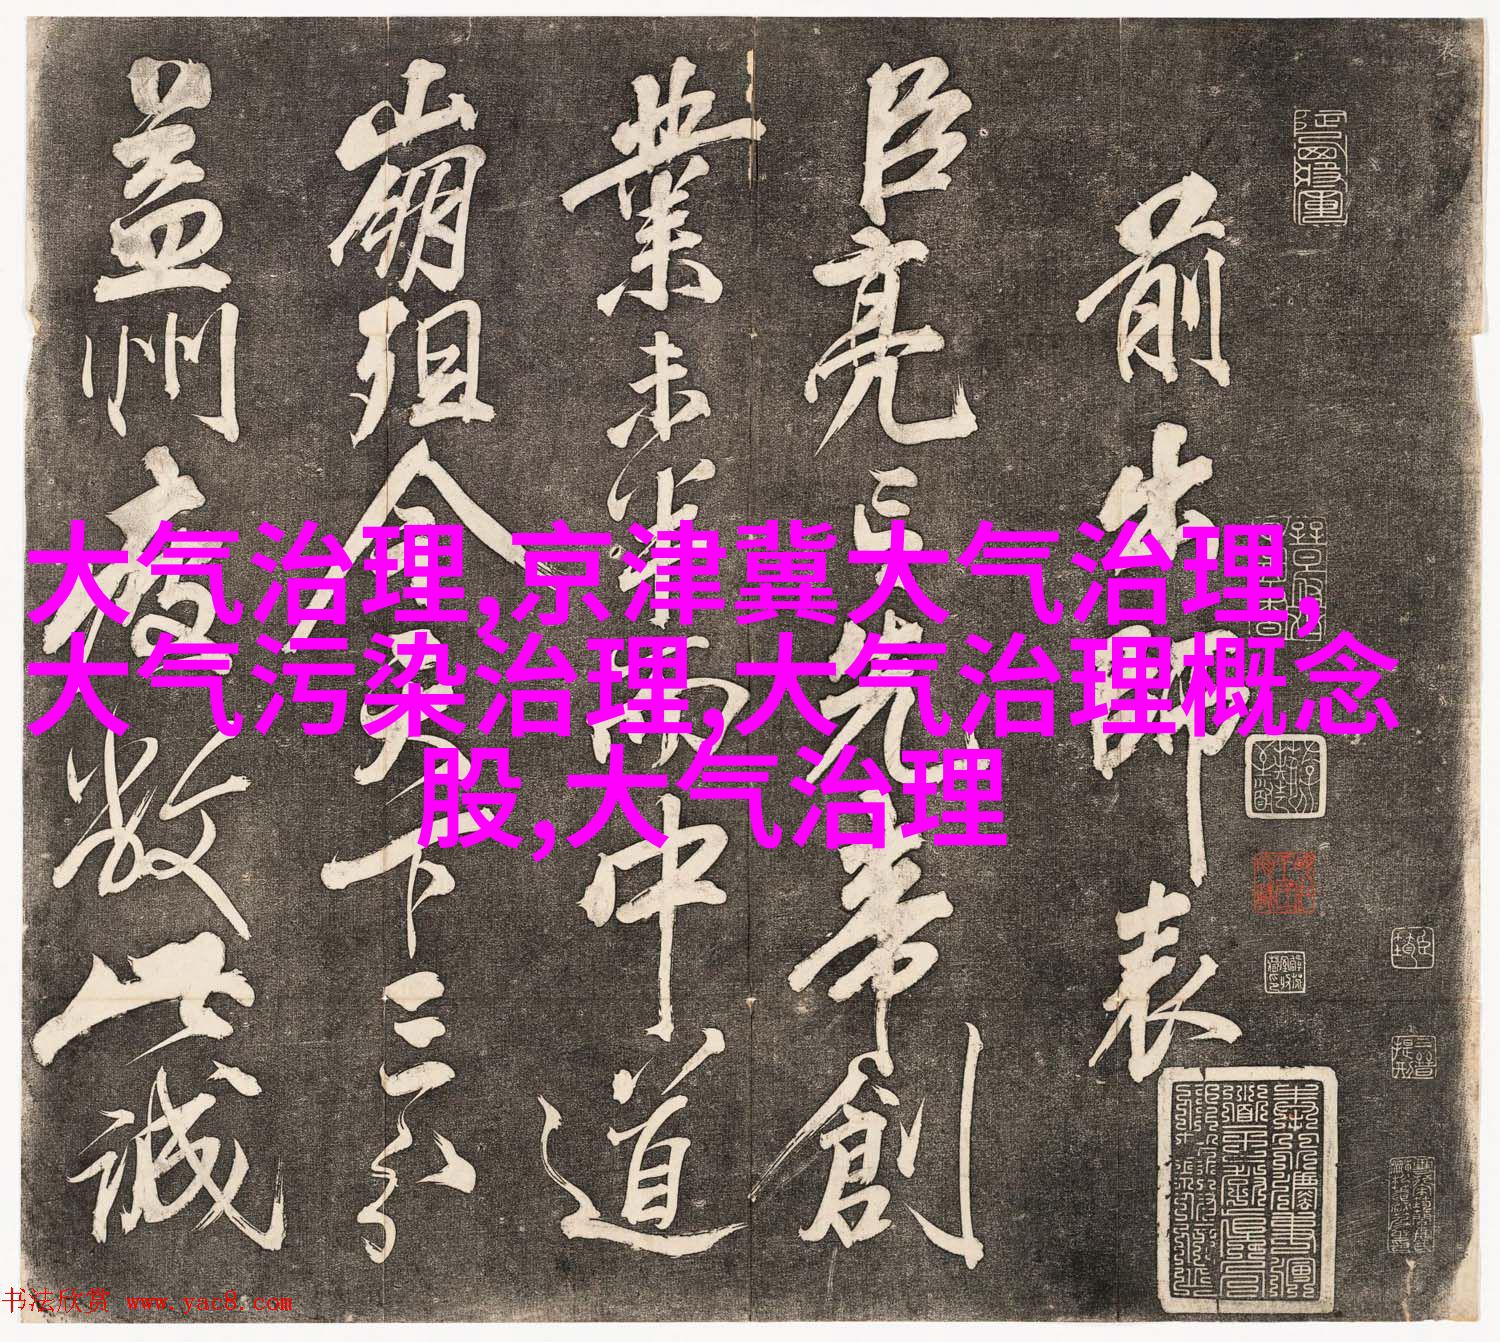 前出師表
臣亮言先帝創
業未半而中道
崩殂今天下三分
益州疲敝此誠
大气治理,京津冀大气治理,
大气污染治理,大气治理概念
股,大气治理
书法欣赏 www.yac8.com